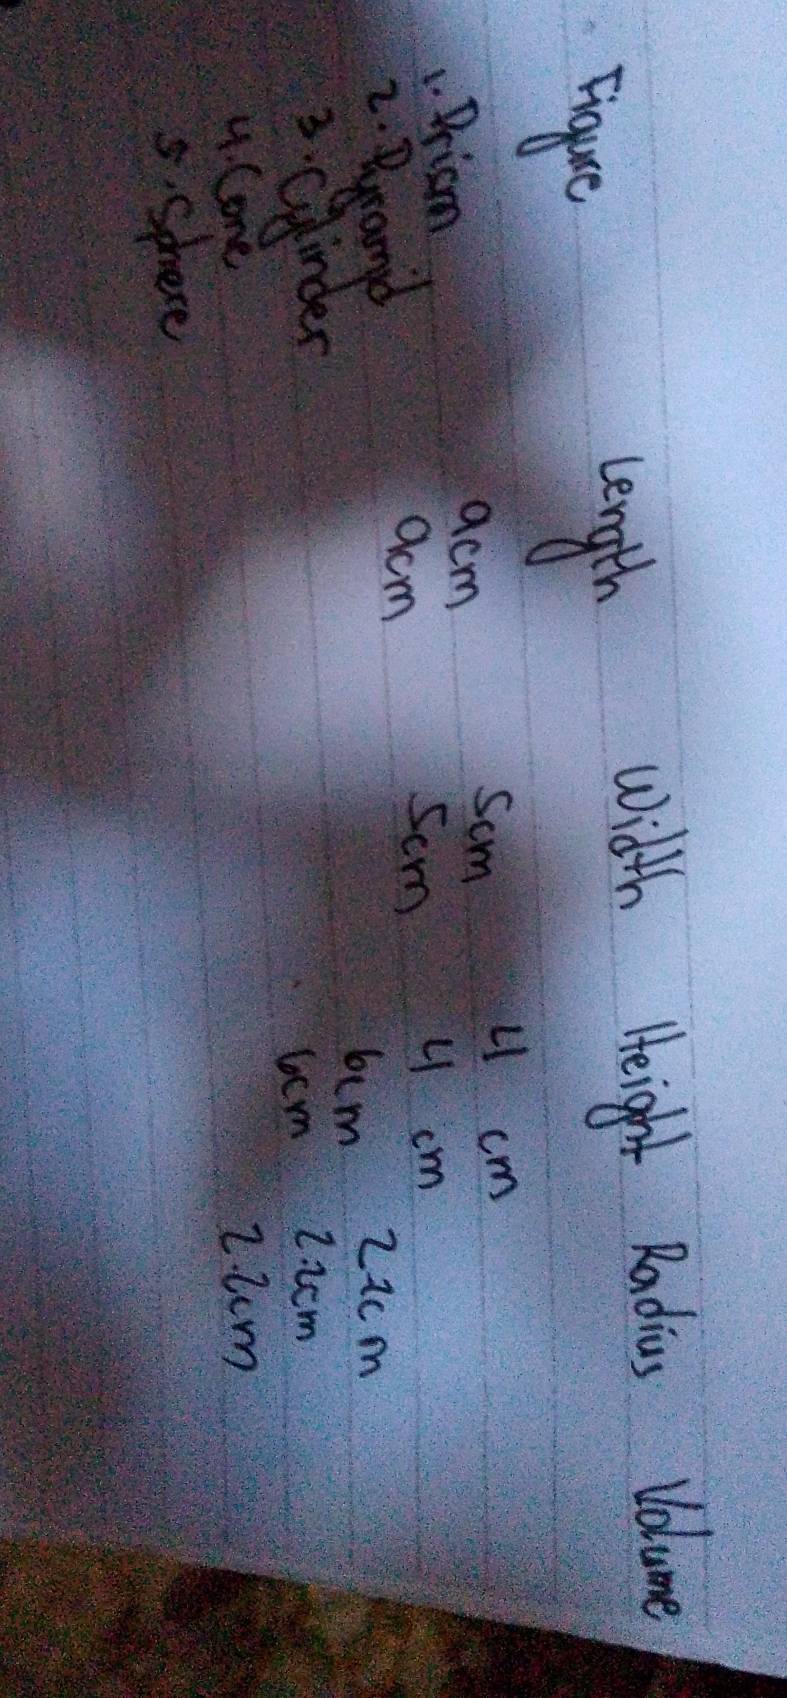 Figure Length Width Height Radius Volume
1. Prism 9cm 5cm 4 cm
2. Pyramid 9cm 5cm 4 cm
3. Cylinder 6cm 2.2cm
4. Cone 6cm 2.2cm
5. Sphere 2.2cm